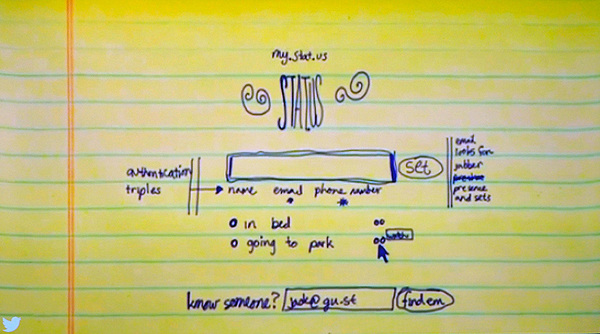 my.stat.us
STATUS
set
authentication
triples
name email phone number
email
looks for
jabber
presence
and sets
in bed
going to park
know someone? jack@gu.st find em